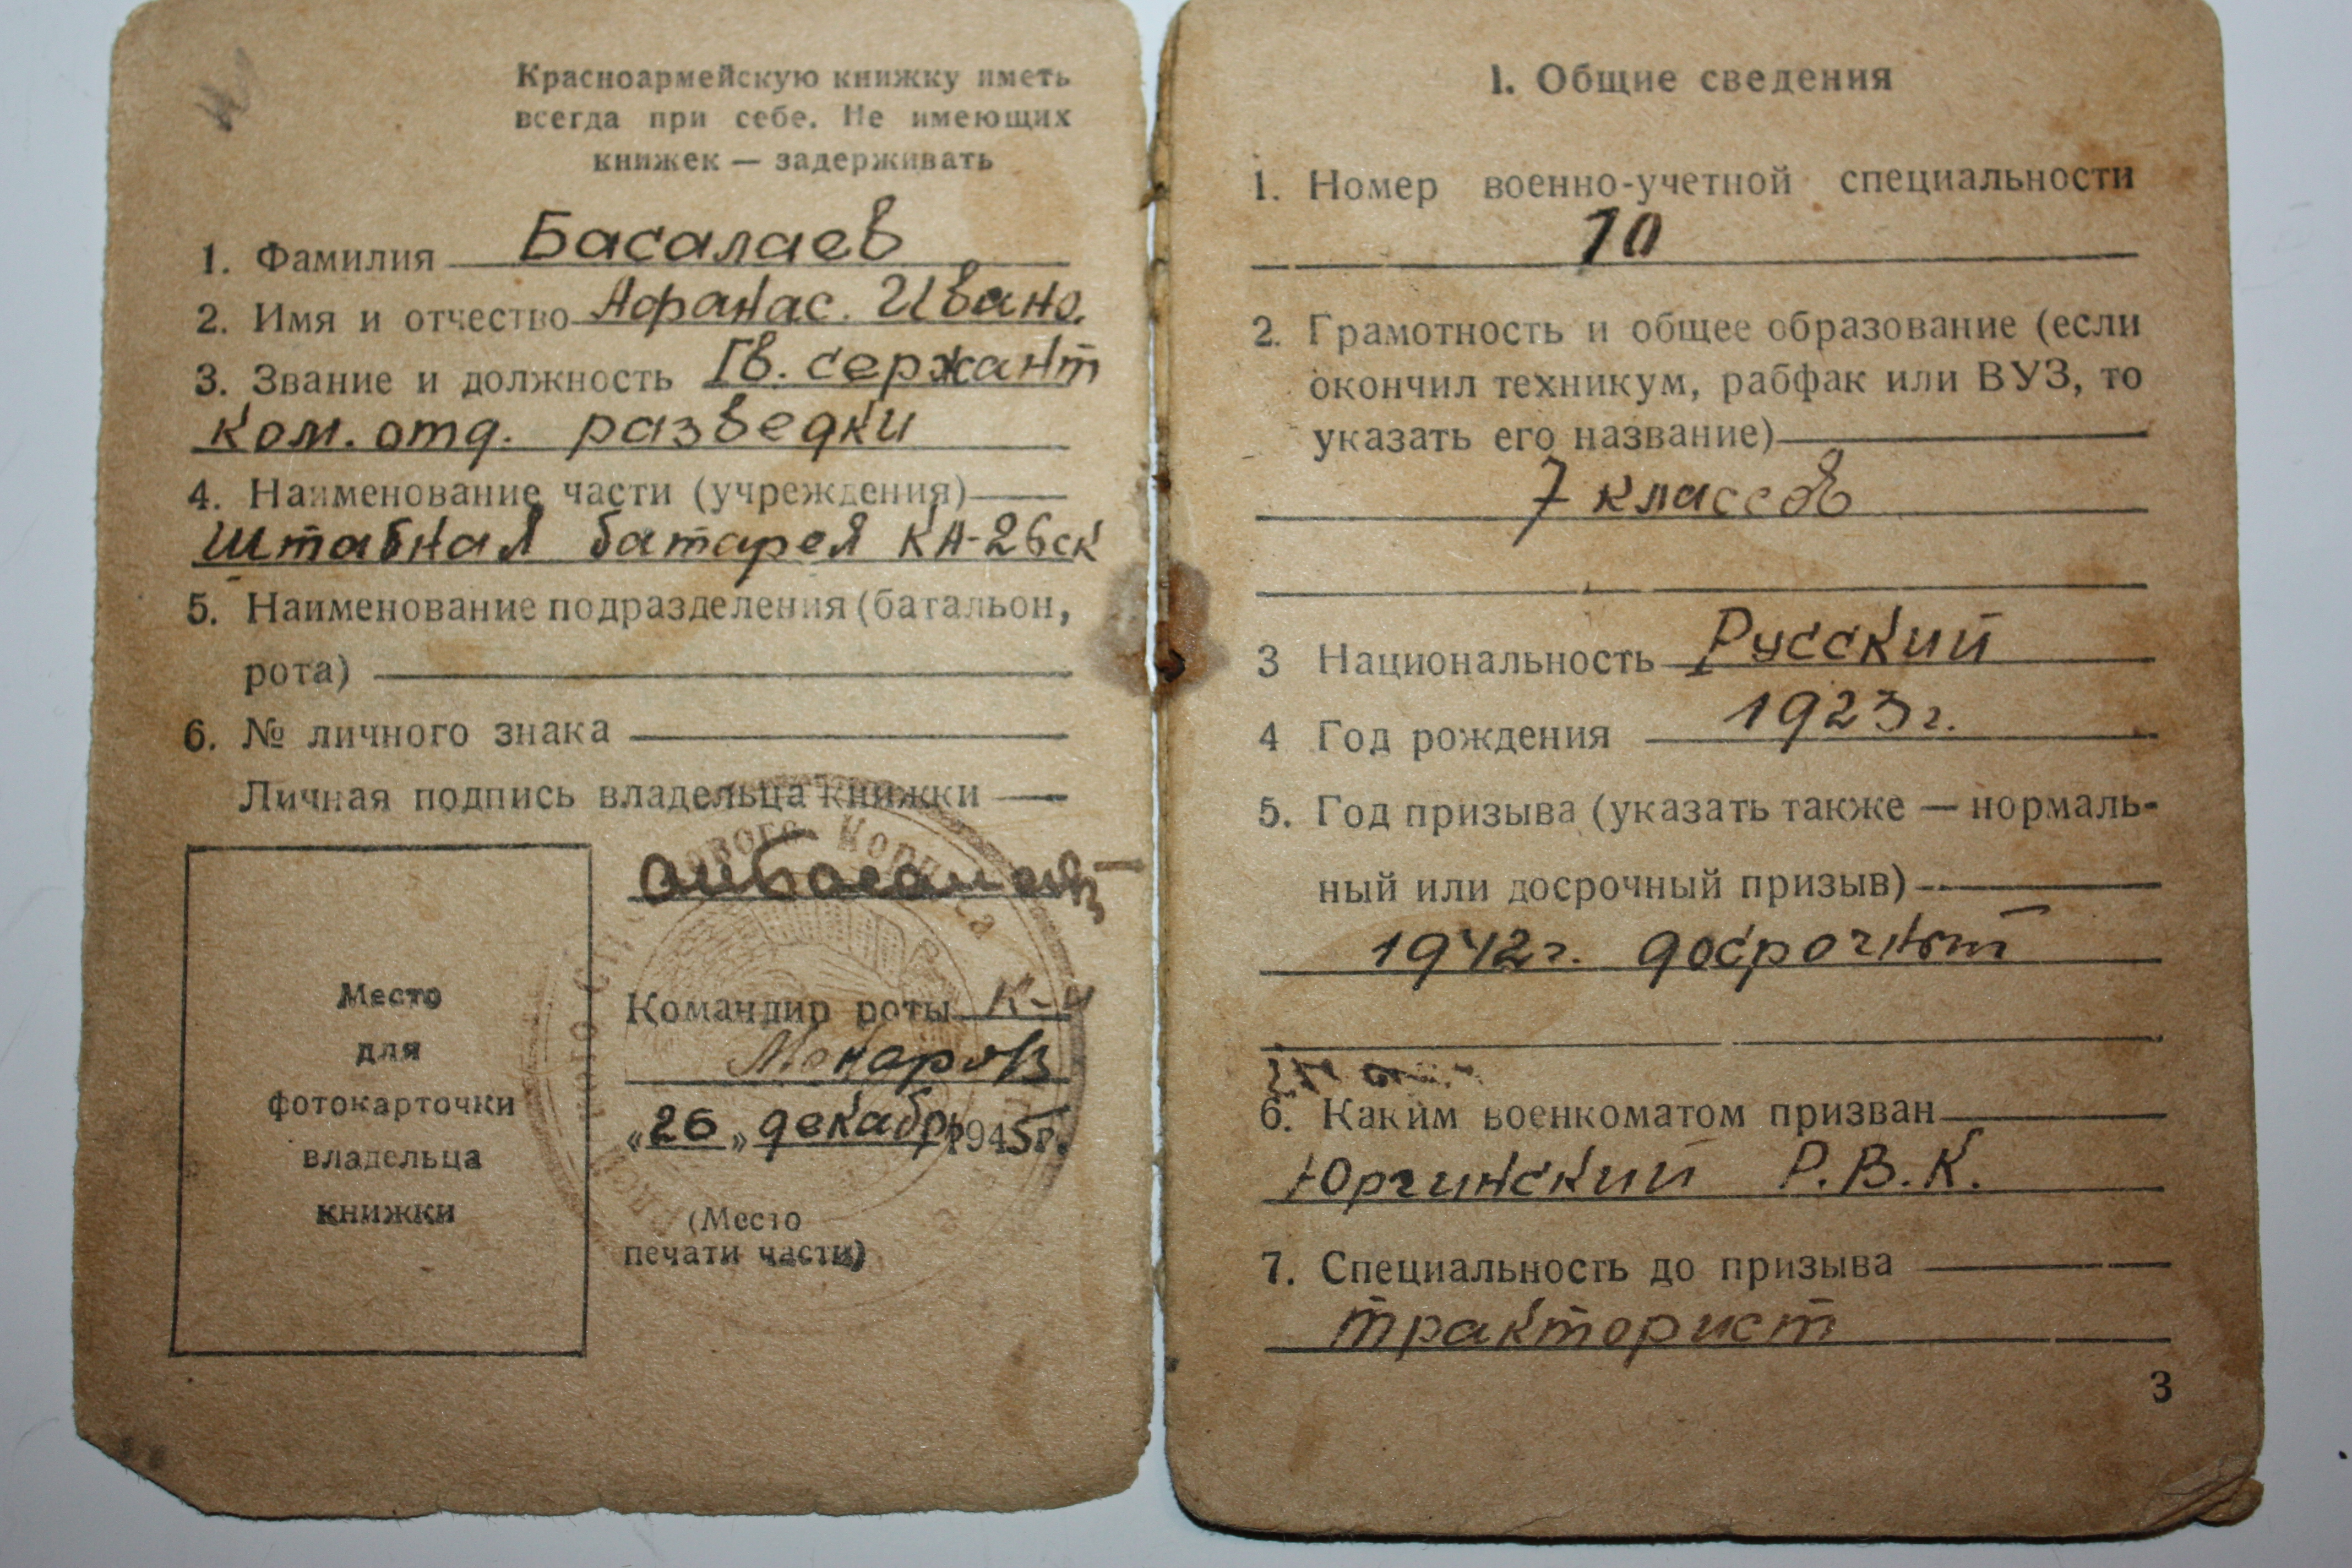 Красноармейскую книжку иметь
всегда при себе. Не имеющих
книжек — задерживать
1. Фамилия Басалаев
2. Имя и отчество Афанас. Ивано.
3. Звание и должность Гв. сержант
ком. отд. разведки
4. Наименование части (учреждения)
Штабная батарея КА-26ск
5. Наименование подразделения (батальон,
рота)
6. № личного знака
Личная подпись владельца книжки
Место
для
фотокарточки
владельца
книжки
Командир роты К-н
«26» декабр 1945г.
(Место
печати части)
1. Общие сведения
1. Номер военно-учетной специальности
10
2. Грамотность и общее образование (если
окончил техникум, рабфак или ВУЗ, то
указать его название)
7 классов
3 Национальность Русский
4 Год рождения 1923г.
5. Год призыва (указать также — нормаль-
ный или досрочный призыв)
1942г. досрочный
6. Каким военкоматом призван
Юргинский Р.В.К.
7. Специальность до призыва
тракторист
3